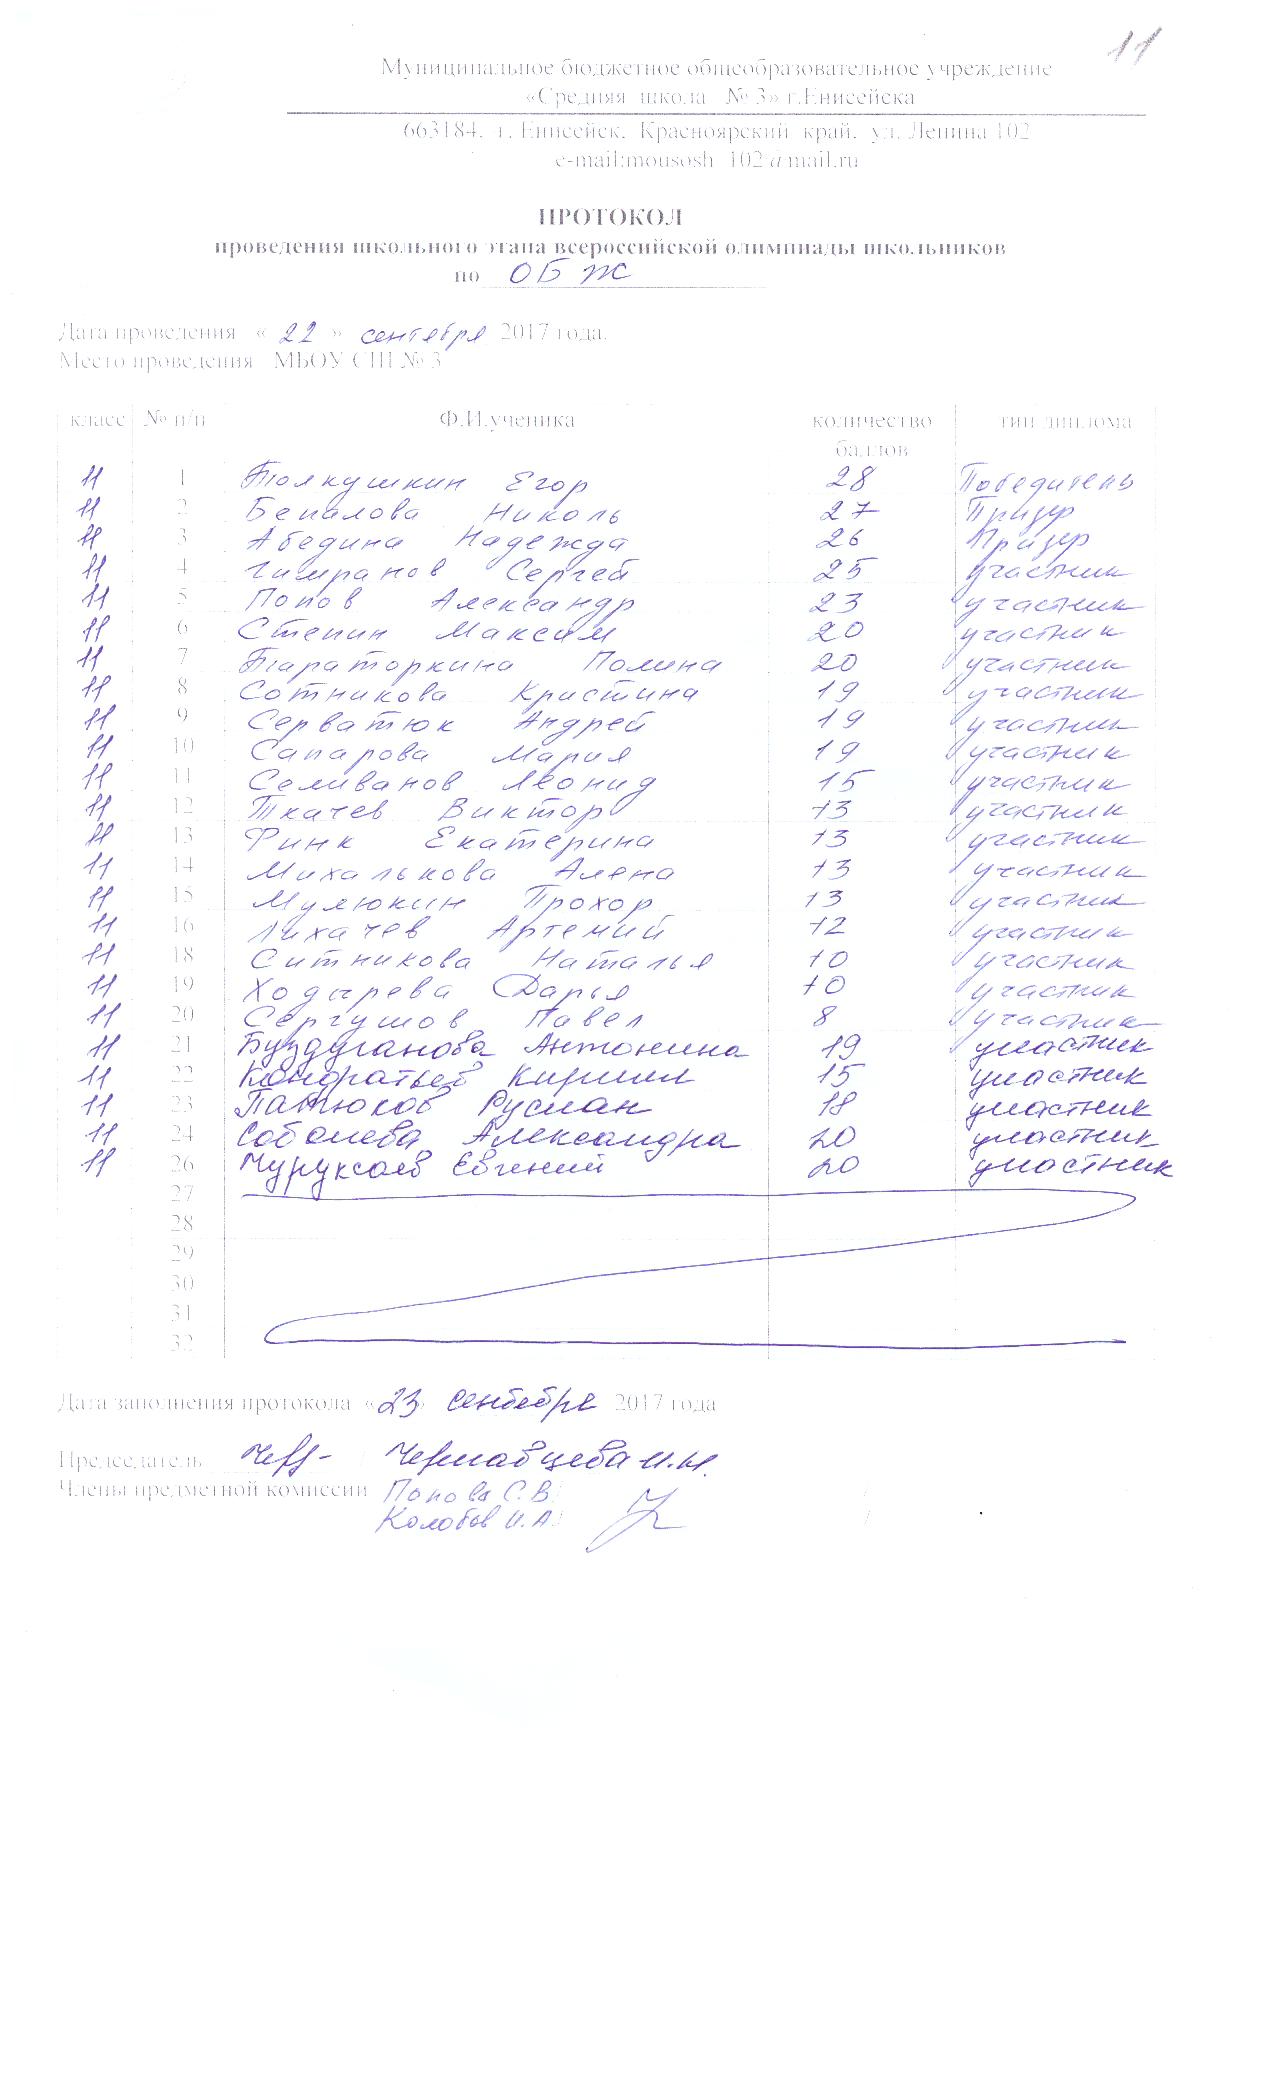 11
Муниципальное бюджетное общеобразовательное учреждение
«Средняя школа № 3» г.Енисейска
663184, г. Енисейск, Красноярский край, ул. Ленина 102
e-mail:mousosh_102@mail.ru
ПРОТОКОЛ
проведения школьного этапа всероссийской олимпиады школьников
по ОБЖ
Дата проведения « 22 » сентября 2017 года.
Место проведения МБОУ СШ № 3
класс № п/п Ф.И.ученика количество баллов тип диплома
11 1 Толкушкин Егор 28 Победитель
11 2 Николь 27 Призер
11 3 Абедина Надежда 26 Призер
11 4 Гимранов Сергей 25 участник
11 5 Попов Александр 23 участник
11 6 Степин Максим 20 участник
11 7 Тараторкина Полина 20 участник
11 8 Сотникова Кристина 19 участник
11 9 Серватюк Андрей 19 участник
11 10 Сапарова Мария 19 участник
11 11 Селиванов Леонид 15 участник
11 12 Ткачев Виктор 13 участник
11 13 Финк Екатерина 13 участник
11 14 Михалькова Алена 13 участник
11 15 Мулюкин Прохор 13 участник
11 16 Лихачев Артемий 12 участник
11 18 Ситникова Наталья 10 участник
11 19 Ходырева Дарья 10 участник
11 20 Сергушов Павел 8 участник
11 21 Буздуганова Антонина 19 участник
11 22 Кондратьев Кирилл 15 участник
11 23 Патюков Руслан 18 участник
11 24 Соболева Александра 20 участник
11 26 Евгений 20 участник
27
28
29
30
31
32
Дата заполнения протокола «23» сентября 2017 года
Председатель Чернавцева И.Н.
Члены предметной комиссии Попова С.В.
Колобов И.А.